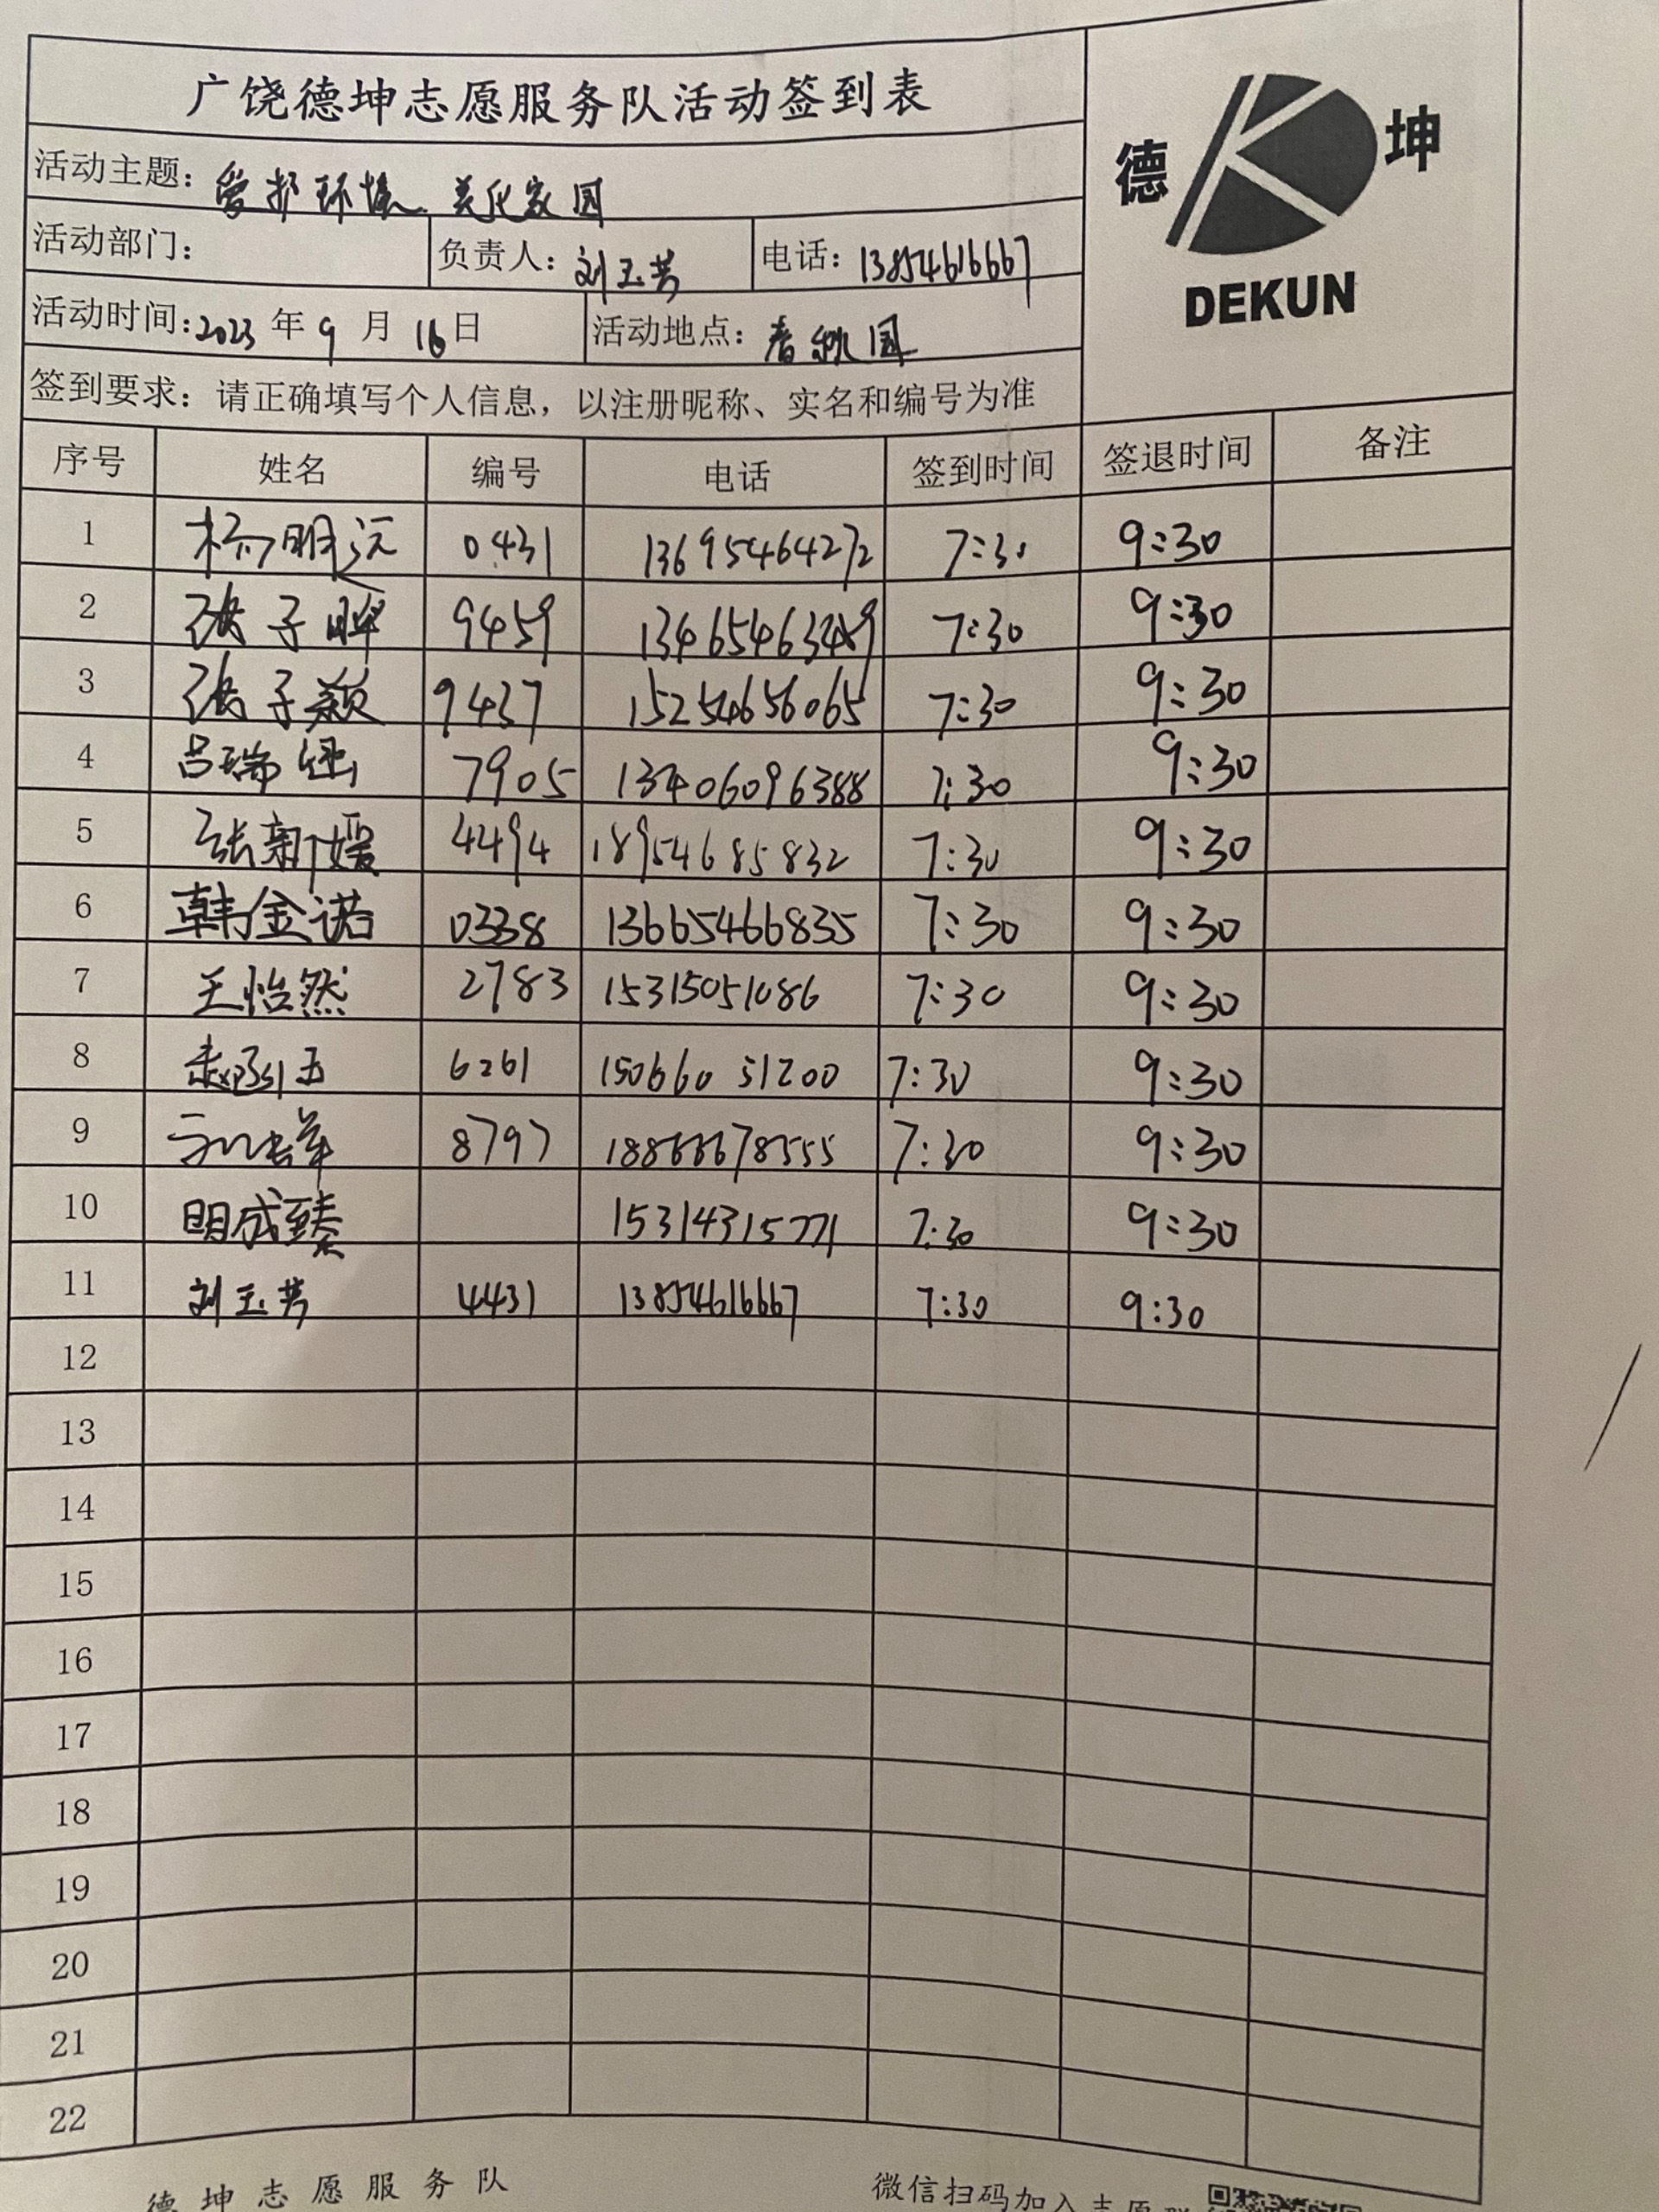 广饶德坤志愿服务队活动签到表
德 坤
DEKUN
活动主题：爱护环境 美化家园
活动部门： 负责人：刘玉芳 电话：13854616667
活动时间：2023年9月16日 活动地点：春秋园
签到要求：请正确填写个人信息，以注册昵称、实名和编号为准
序号 姓名 编号 电话 签到时间 签退时间 备注
1 杨明远 0431 13695464272 7:30 9:30
2 张子晔 9459 13465463489 7:30 9:30
3 张子颖 9437 15254656065 7:30 9:30
4 吕瑞 7905 13406096388 7:30 9:30
5 张新媛 4494 18954685832 7:30 9:30
6 韩金诺 0338 13665466835 7:30 9:30
7 王怡然 2783 15315051086 7:30 9:30
8 赵 玉 6261 15066051200 7:30 9:30
9 8797 18866678555 7:30 9:30
10 明成臻 15314315771 7:30 9:30
11 刘玉芳 4431 13854616667 7:30 9:30
12
13
14
15
16
17
18
19
20
21
22
德坤志愿服务队 微信扫码加入志愿群